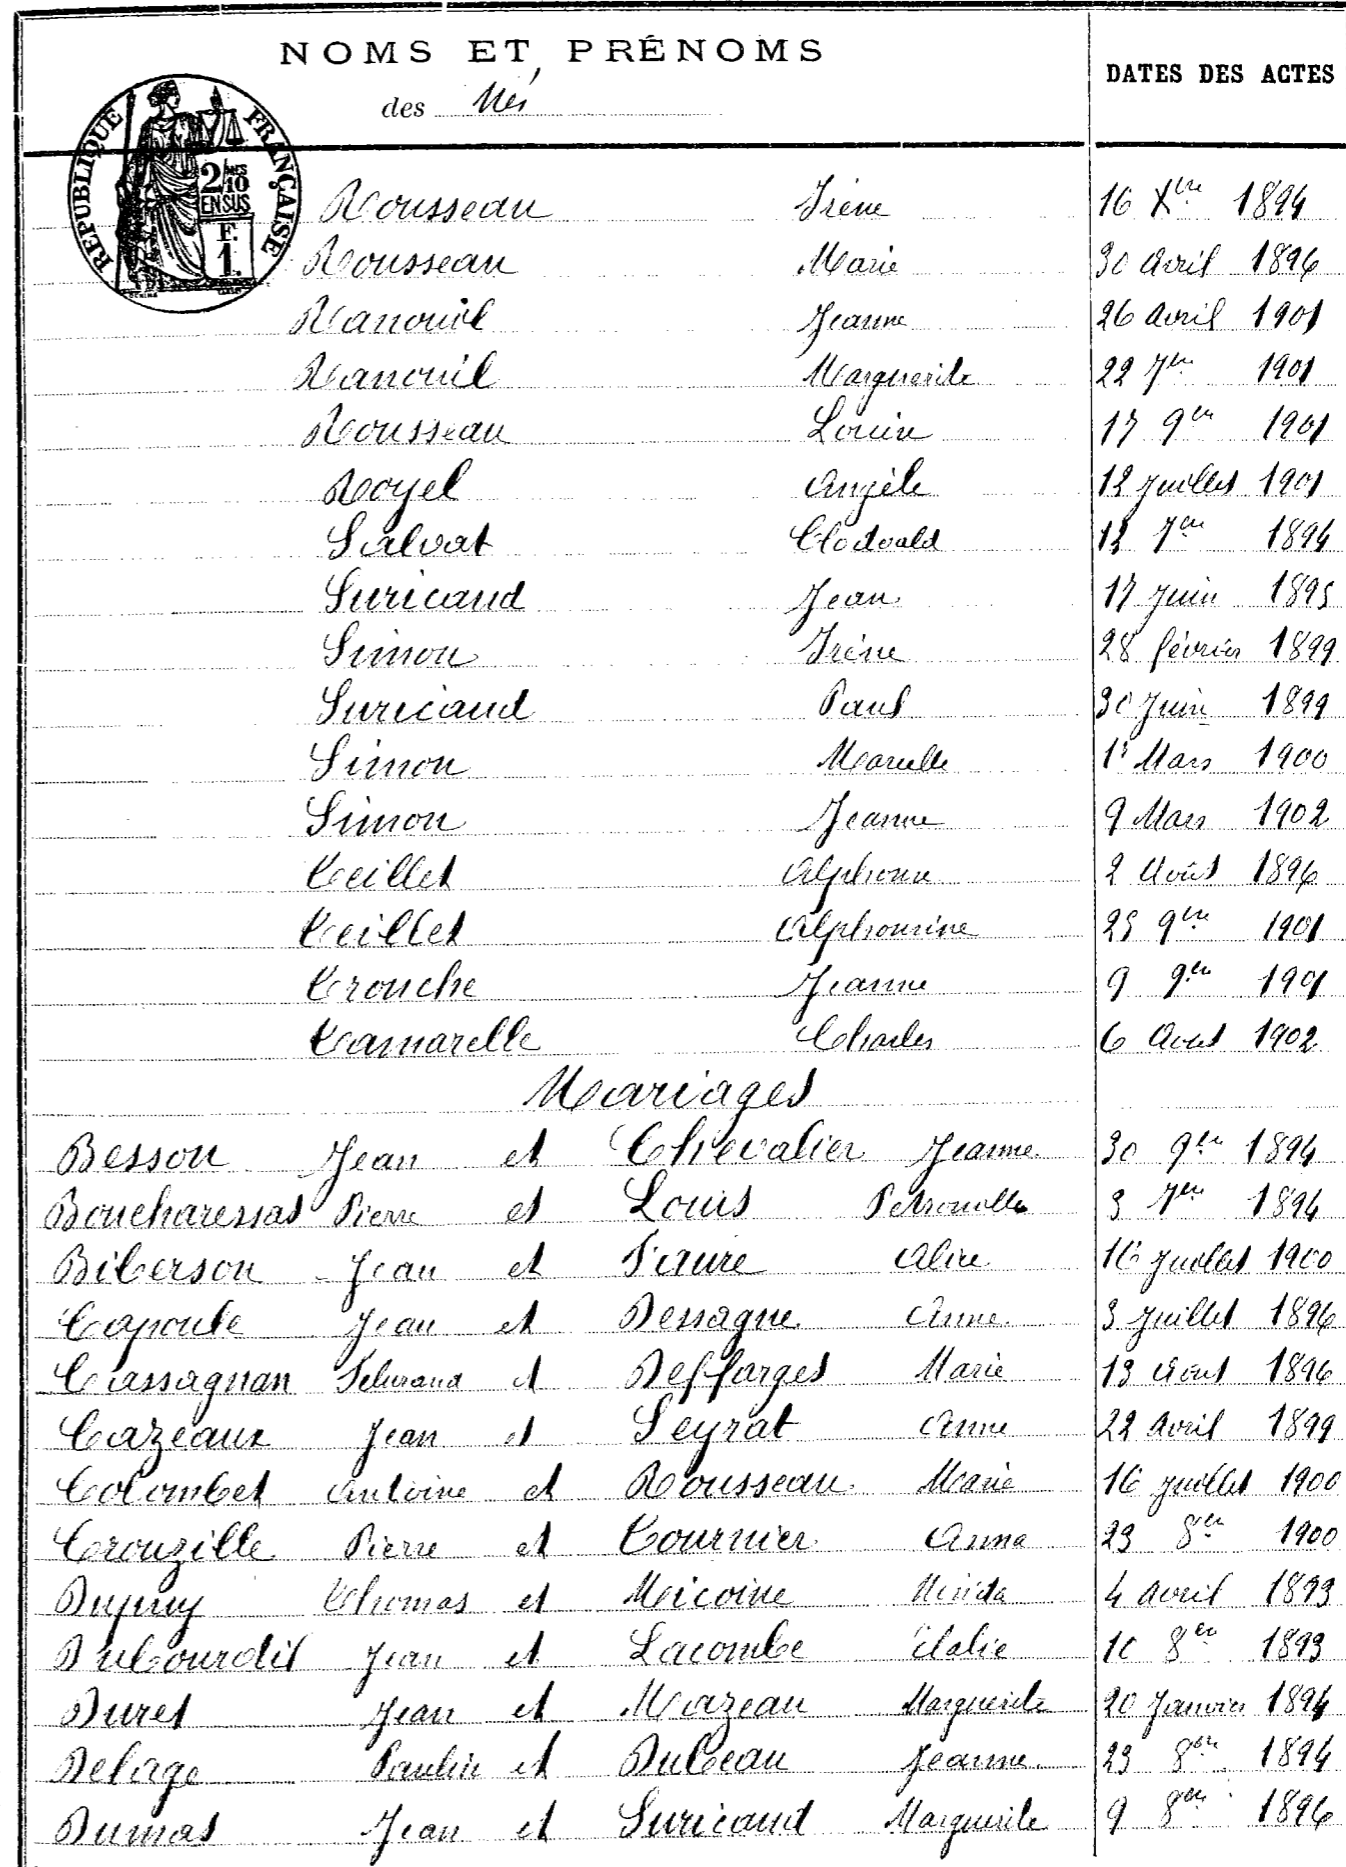 NOMS ET PRÉNOMS
des Nés
DATES DES ACTES
RÉPUBLIQUE FRANÇAISE
2/10 MES
EN SUS
F.
1.
Rousseau Irène 16 Xbre 1894
Rousseau Marie 30 Avril 1896
Ranouil Jeanne 26 Avril 1901
Ranouil Marguerite 22 7bre 1901
Rousseau Louise 17 9bre 1901
Royel Angèle 12 Juillet 1901
Salvat Clodoald 12 7bre 1894
Suricaud Jean 17 Juin 1895
Simon Irène 28 février 1899
Suricaud Paul 30 Juin 1899
Simon Marcelle 1r Mars 1900
Simon Jeanne 9 Mars 1902
Teillet Alphonse 2 Août 1896
Teillet Alphonsine 25 9bre 1901
Trouche Jeanne 9 9bre 1901
Tamarelle Charles 6 Août 1902
Mariages
Besson Jean et Chevalier Jeanne 30 9bre 1894
Boucharessas Pierre et Louis Petronille 3 7bre 1894
Biberson Jean et Faure Alice 16 Juillet 1900
Capoule Jean et Dessagne Anne 3 Juillet 1896
Cassagnan et Deffarges Marie 13 Août 1896
Cazeaux Jean et Seyrat Anne 22 Avril 1899
Colombet Antoine et Rousseau Marie 16 Juillet 1900
Crouzille Pierre et Tournier Anna 23 8bre 1900
Dupuy Thomas et Micoine 4 Avril 1893
Dubourdil Jean et Lacombe 10 8bre 1893
Duret Jean et Mazeau Marguerite 20 Janvier 1894
Delage Paulin et Dubeau Jeanne 23 8bre 1894
Dumas Jean et Suricaud Marguerite 9 8bre 1896